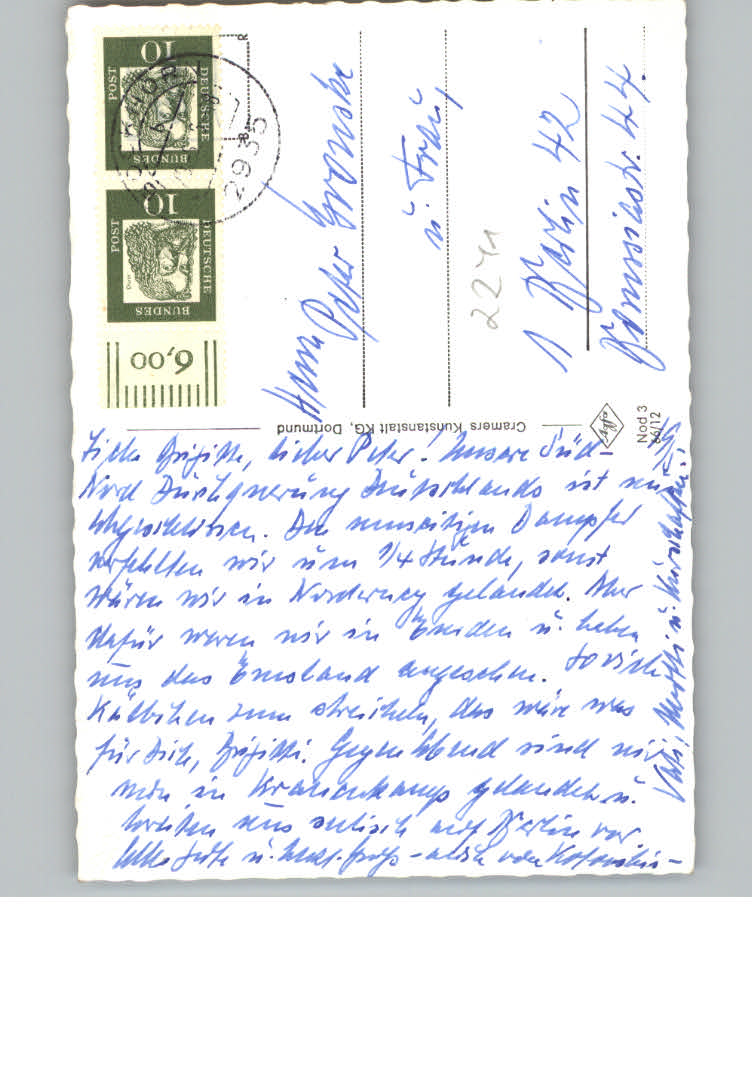 Liebe Brigitte, lieber Peter! Unsere Süd-
Nord Durchquerung Deutschlands ist nun
abgeschlossen. Den Dampfer
verfehlten wir um 1/4 Stunde, sonst
wären wir in Norderney gelandet. Aber
dafür waren wir in Emden u. haben
uns das Emsland angesehen. So viele
Kälbchen zum streicheln, das wäre was
für Dich, Brigitte. Gegen Abend sind wir
nun in Kranenkamp gelandet u.
bereiten uns seelisch auf Berlin vor
Alles Gute u. herzl. Grüße - auch von
Vati, Mutti u.
Herrn
Peter Gronske
u. Frau
2271
1 Berlin 42
44
Cramers Kunstanstalt KG, Dortmund
Agfa
Nod 3
66/12
DEUTSCHE
BUNDES
POST
10
DEUTSCHE
BUNDES
POST
10
Dürer
6,00
2935